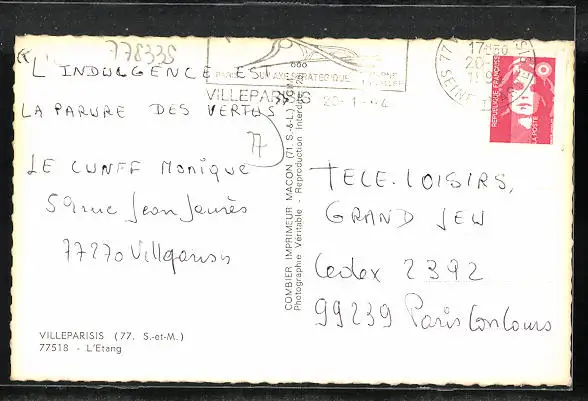 778335
"L'INDULGENCE EST
LA PARURE DES VERTUS"
77
LE CUNFF Monique
59 rue Jean Jaurès
77270 Villeparisis
VILLEPARISIS (77. S.-et-M.)
77518 - L'Etang
SUR AXE STRATEGIQUE
VILLEPARISIS
20-1
COMBIER IMPRIMEUR MACON (71 S.-&-L.)
Photographie Véritable - Reproduction Interdite
77
17H
20-1
SEINE
REPUBLIQUE FRANÇAISE
LA POSTE
TELE-LOISIRS,
GRAND JEU
Cedex 2392
99239 Paris Concours